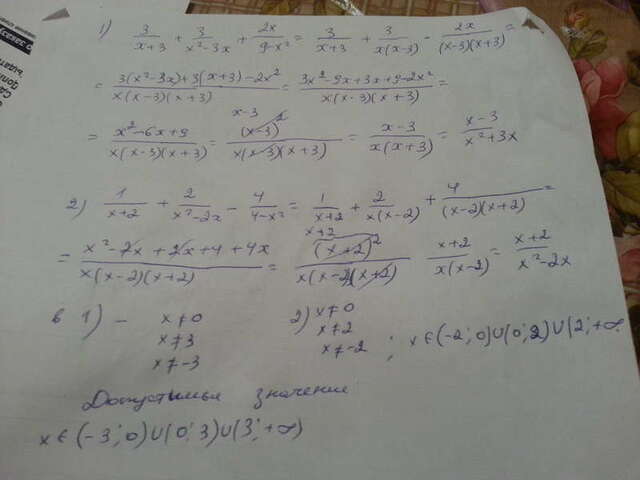 1) 3/(x+3) + 3/(x²-3x) + 2x/(9-x²) = 3/(x+3) + 3/(x(x-3)) - 2x/((x-3)(x+3)) =
= (3(x²-3x)+3(x+3)-2x²)/(x(x-3)(x+3)) = (3x²-9x+3x+9-2x²)/(x(x-3)(x+3)) =
= (x²-6x+9)/(x(x-3)(x+3)) = (x-3)²/(x(x-3)(x+3)) x-3 = (x-3)/(x(x+3)) = (x-3)/(x²+3x)
2) 1/(x+2) + 2/(x²-2x) - 4/(4-x²) = 1/(x+2) + 2/(x(x-2)) + 4/((x-2)(x+2)) =
= (x²-2x+2x+4+4x)/(x(x-2)(x+2)) = (x+2)²/(x(x-2)(x+2)) x+2 (x+2)/(x(x-2)) = (x+2)/(x²-2x)
в 1) - x≠0 2) x≠0
x≠3 x≠2
x≠-3 x≠-2 ; x∈(-2;0)∪(0;2)∪(2;+∞
Допустимые значение
x∈(-3;0)∪(0;3)∪(3;+∞)